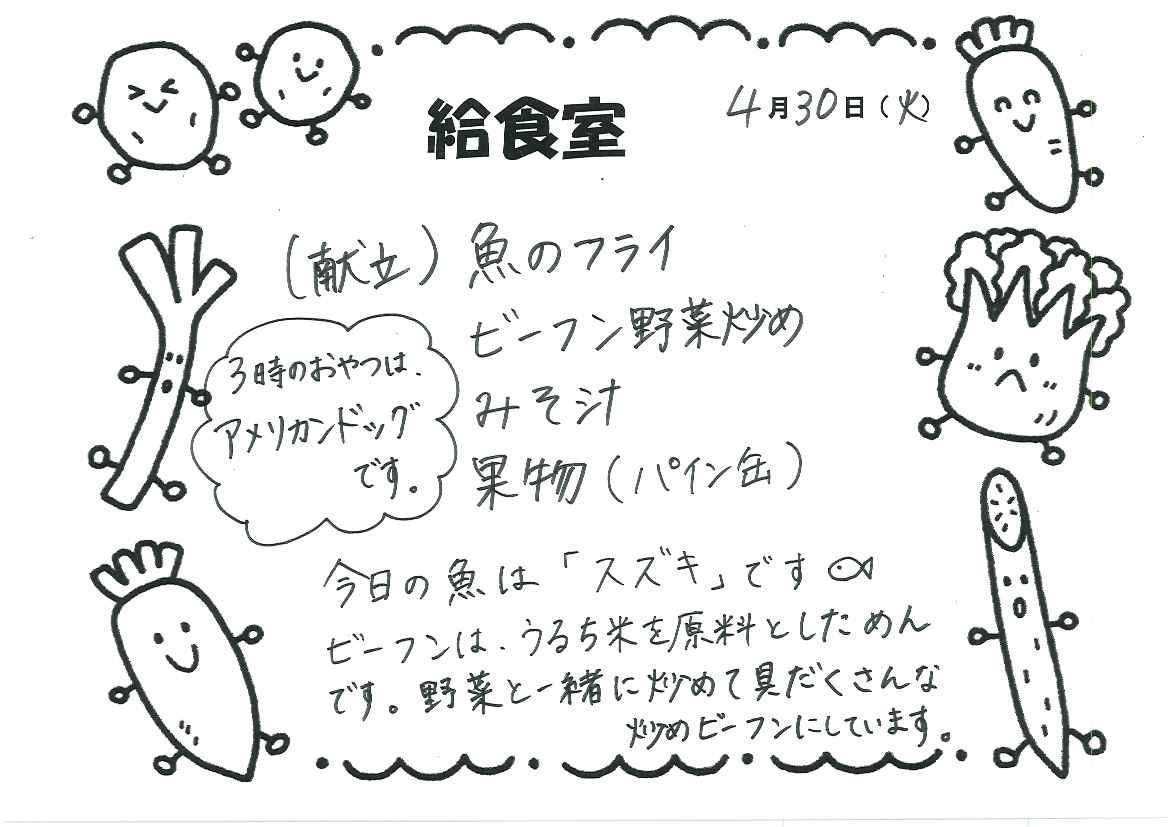 給食室
4月30日(火)
(献立)魚のフライ
ビーフン野菜炒め
みそ汁
果物(パイン缶)
3時のおやつは、
アメリカンドッグ
です。
今日の魚は「スズキ」です
ビーフンは、うるち米を原料としためん
です。野菜と一緒に炒めて具だくさんな
炒めビーフンにしています。